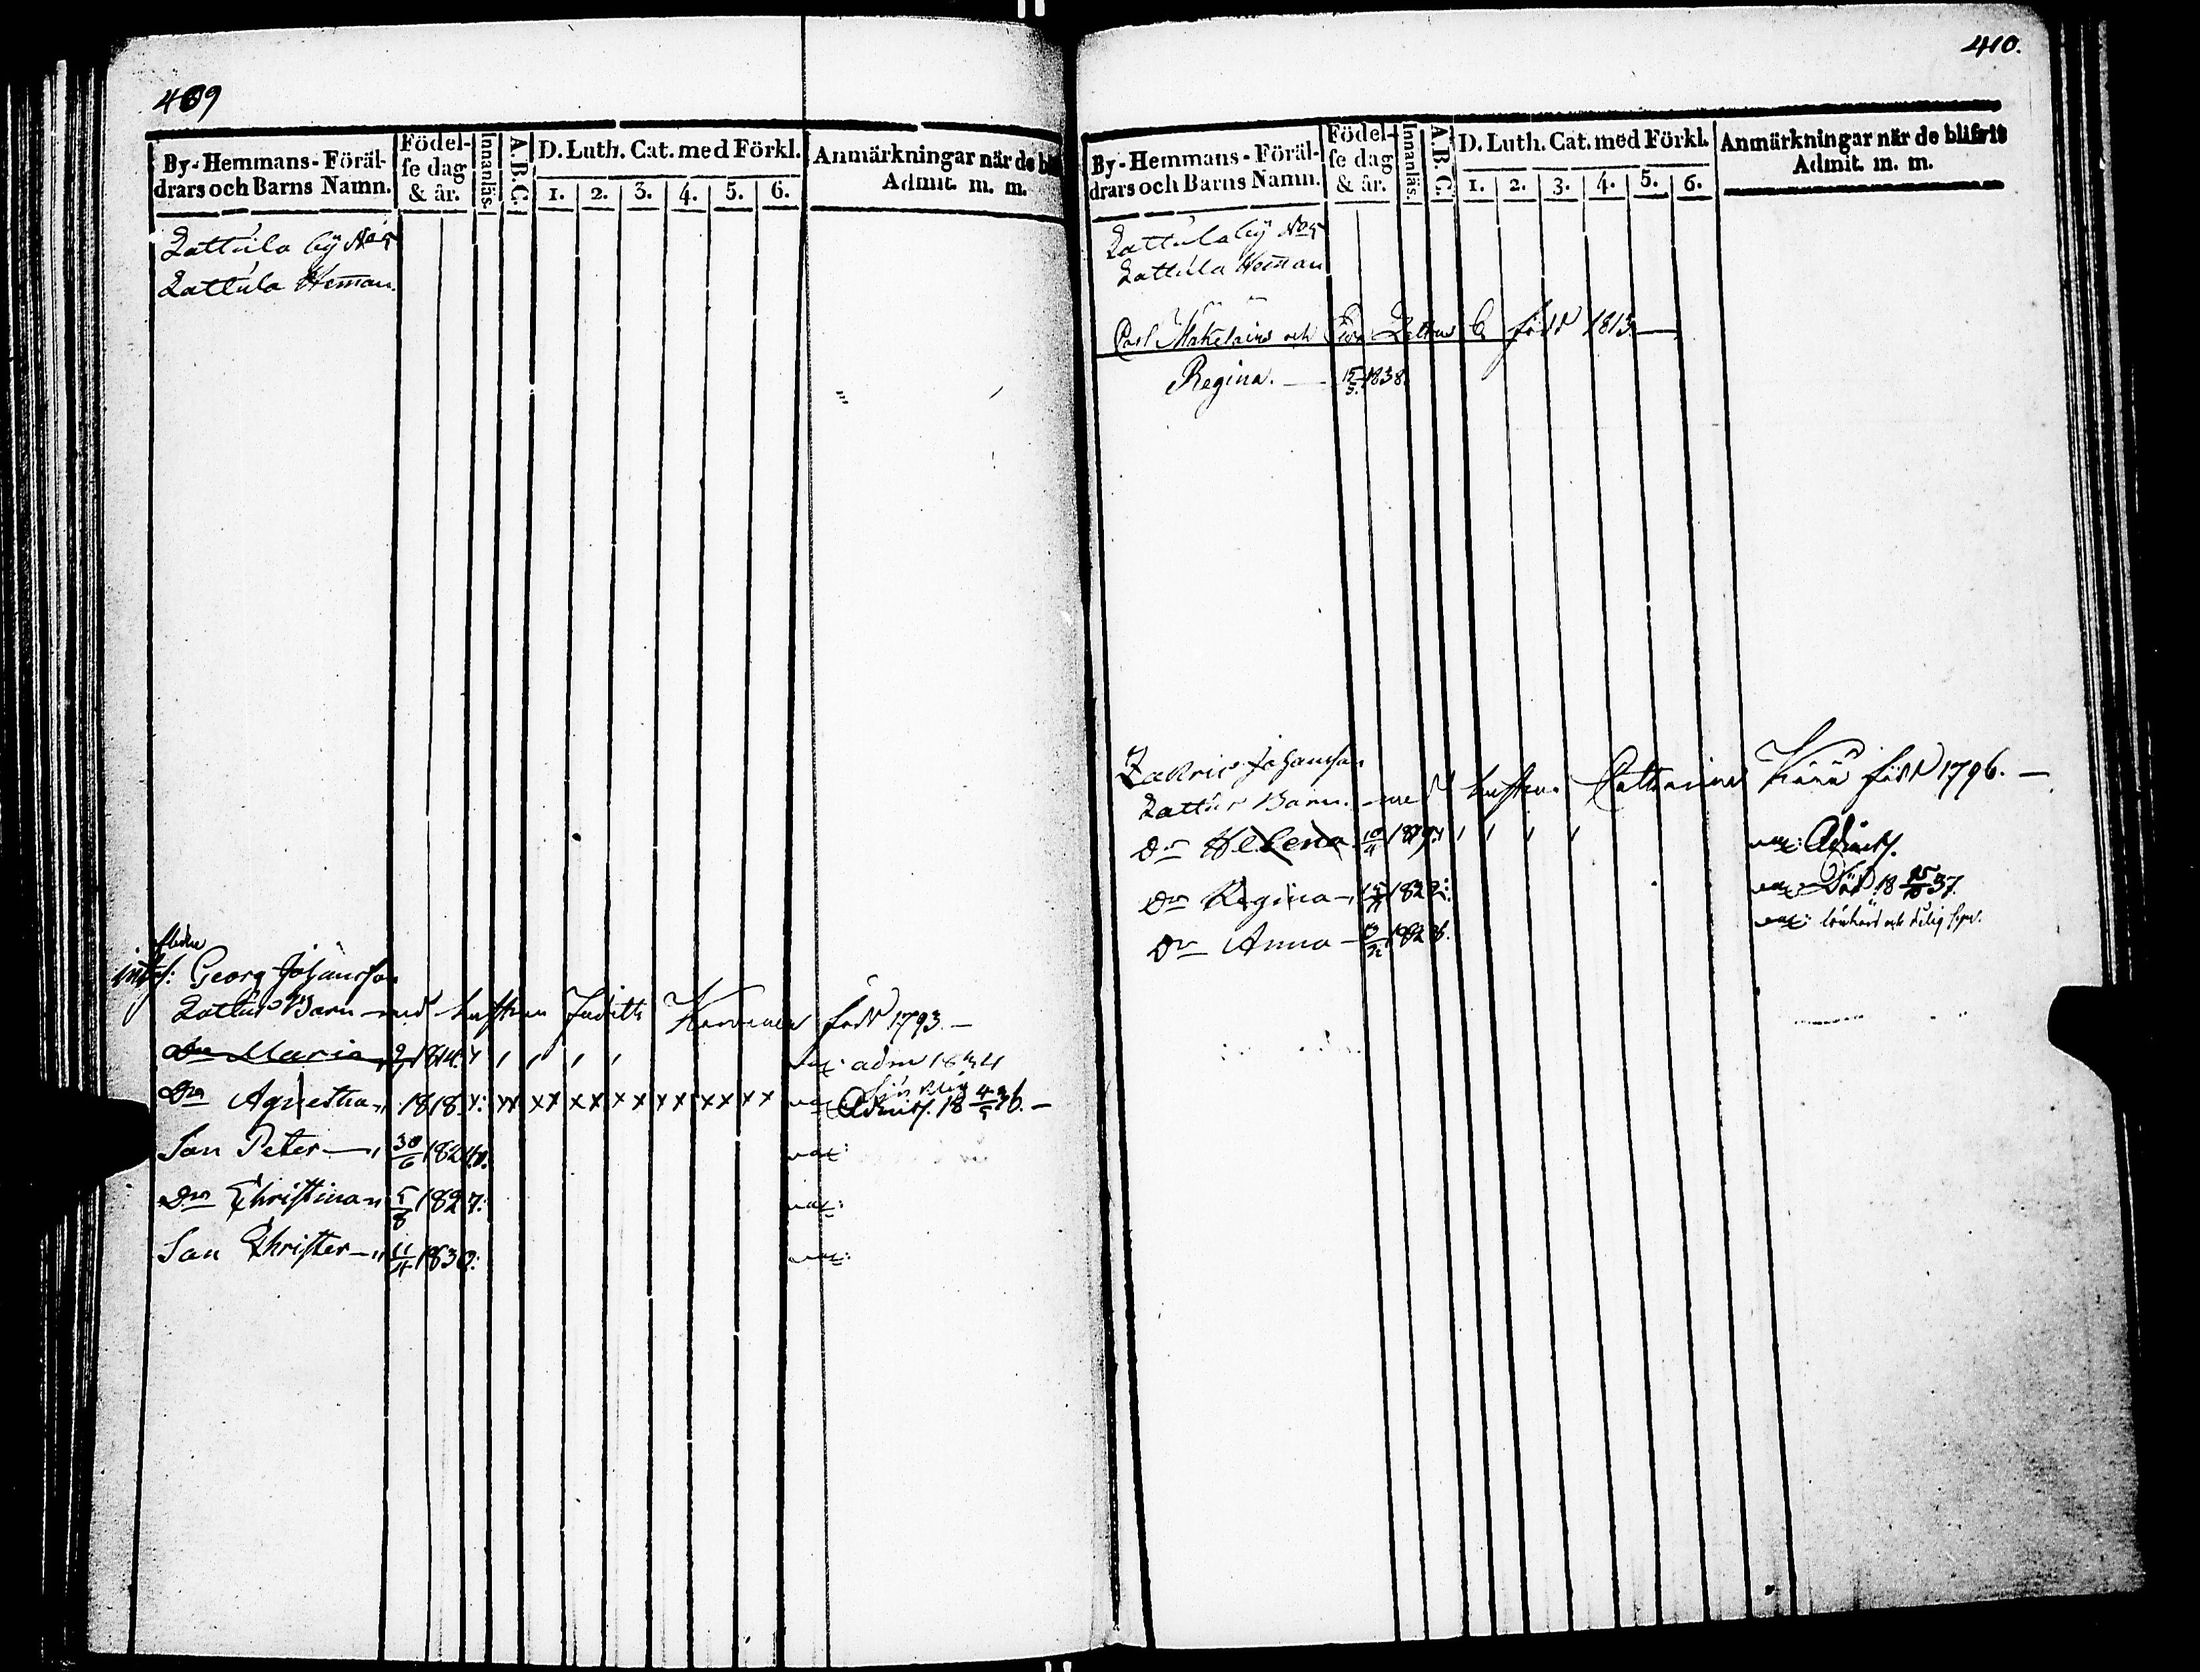 409
By-Hemmans-Föräl-
drars och Barns Namn.
Födel-
se dag
& år.
Innanläs.
A.B.C.
D. Luth. Cat. med Förkl.
1. 2. 3. 4. 5. 6.
Anmärkningar när de bli
Admit. m. m.
Lattula by No 5
Lattula Hem̄an.
Georg Johansson
Lattus Barn med hustrun Judith född 1793.—
Dr Maria 1814. adm 1834
Dr Agnetha 1818. x: xx xx xx xx xx xx xx vac: Admitt. 18 4/5 36.—
Son Peter— 30/6 1824. vac:
Dr Christina 5/8 1827: vac:
Son Christer— 11/11 1830: vac:
410.
By-Hemmans-Föräl-
drars och Barns Namn.
Födel-
se dag
& år.
Innanläs.
A.B.C.
D. Luth. Cat. med Förkl.
1. 2. 3. 4. 5. 6.
Anmärkningar när de blifvit
Admit. m. m.
Lattula by No 5
Lattula Hem̄an
Carl Mäkeläins och född 1813—
Regina.— 15/5 1838.
Zachris Johansson
Lattus Barn. med hustrun Catharina född 1796.—
Dr Helena 1819. vac: Admitt.
Dr Regina— 1822: vac: Död 18 25/10 37
Dr Anna— 1826. vac: